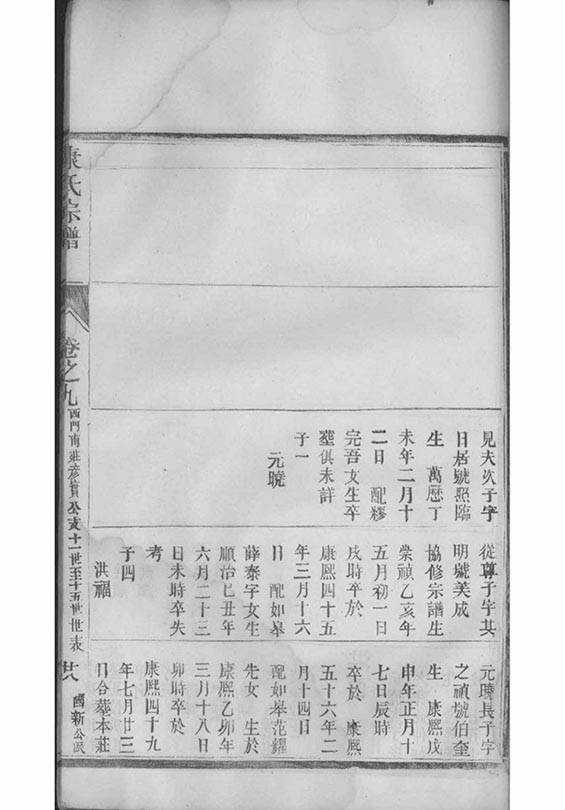 見夫次子字
日居號照臨
生 萬曆丁
未年二月十
二日 配繆
完吾女生卒
塟俱未詳
子一
元曉
從尊子字其
明號美成
協修宗譜生
崇禎乙亥年
五月初一日
戌時卒於
康熙四十五
年三月十六
日 配如皋
薛泰字女生
順治己丑年
六月二十三
日未時卒失
考
子四
洪福
元曉長子字
之禎號伯奎
生 康熙戊
申年正月十
七日辰時
卒於 康熙
五十六年二
月十四日
配如皋范耀
先女 生於
康熙乙卯年
三月十八日
卯時卒於
康熙四十九
年七月廿三
日合塟本莊
氏宗譜
卷之九
西門南莊彥貫公支十一世至十五世世表
廿八
國新公派